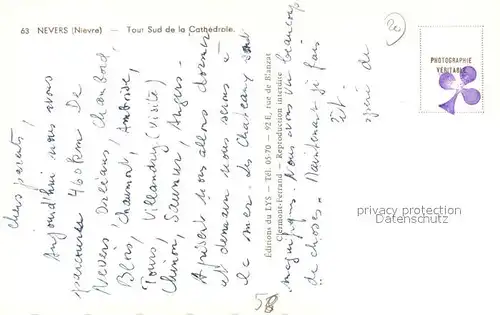 63 NEVERS (Nièvre) — Tour Sud de la Cathédrale.
Chers parents,
Aujourd'hui nous avons
parcouru 460 km De
Nevers Orléans, Chambord,
Blois, Chaumont, Amboise,
Tours, Villandry (visite)
Chinon, Saumur, Angers.
A présent nous allons dormir
et demain nous serons à
la mer. Les Chateaux sont
magnifiques. Nous avons vu beaucoup
de choses. Maintenant je fais
de
Editions du LYS — Tél. 05-70 — 92 E, rue de Blanzat
Clermont-Ferrand — Reproduction interdite
PHOTOGRAPHIE
VÉRITABLE
privacy protection
Datenschutz